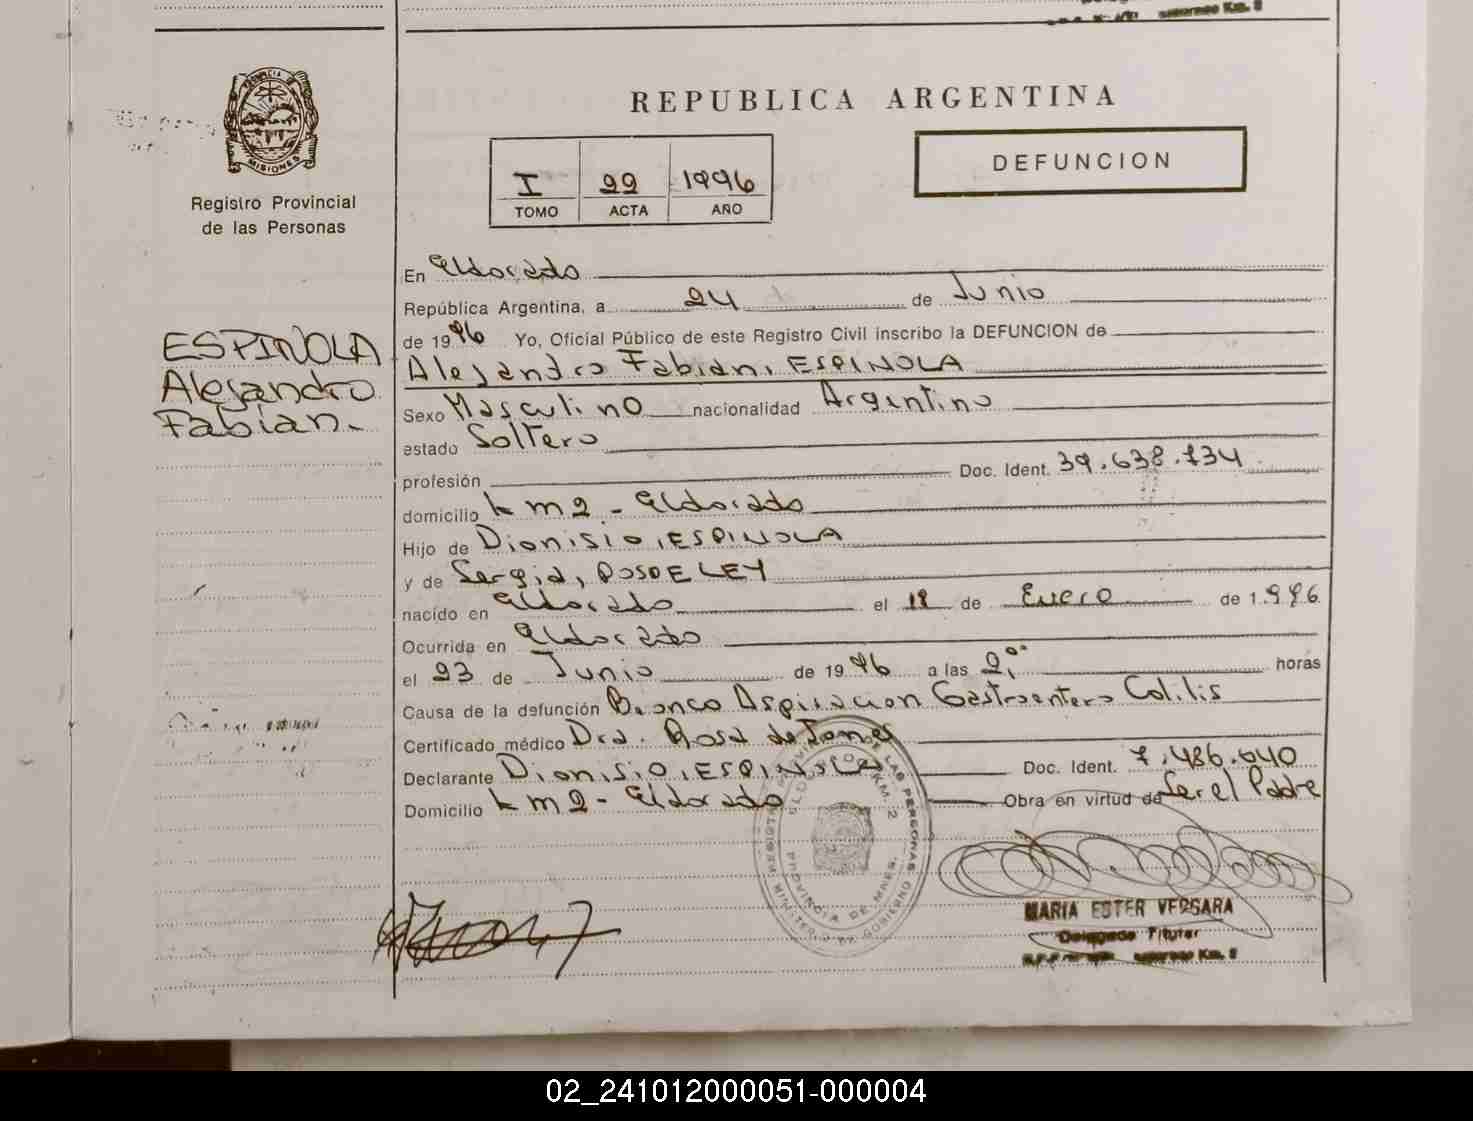 PROVINCIA DE
MISIONES
Registro Provincial
de las Personas
REPUBLICA ARGENTINA
I 22 1996
TOMO ACTA AÑO
DEFUNCION
ESPINOLA
Alejandro
Fabian.-
En Eldorado
República Argentina, a 24 de Junio
de 1996 Yo, Oficial Público de este Registro Civil inscribo la DEFUNCION de
Alejandro Fabian, ESPINOLA
Sexo Masculino nacionalidad Argentino
estado Soltero
profesión Doc. Ident. 39.638.734
domicilio km 2 - Eldorado
Hijo de Dionisio, ESPINOLA
y de Sergia,
nacido en Eldorado el 18 de Enero de 1.996
Ocurrida en Eldorado
el 23 de Junio de 1996 a las 2,°° horas
Causa de la defunción Bronco Aspiracion Gastroentero Colitis
Certificado médico Dra. Rosa de
Declarante Dionisio, ESPINOLA Doc. Ident. 7.486.040
Domicilio km 2 - Eldorado Obra en virtud de Ser el Padre
REGISTRO PROVINCIAL DE LAS PERSONAS
ELDORADO KM. 2
PROVINCIA DE MNES.
MINISTERIO DE GOBIERNO
MARIA ESTER VERGARA
Delegada Titular
Eldorado Km. 2
02_241012000051-000004